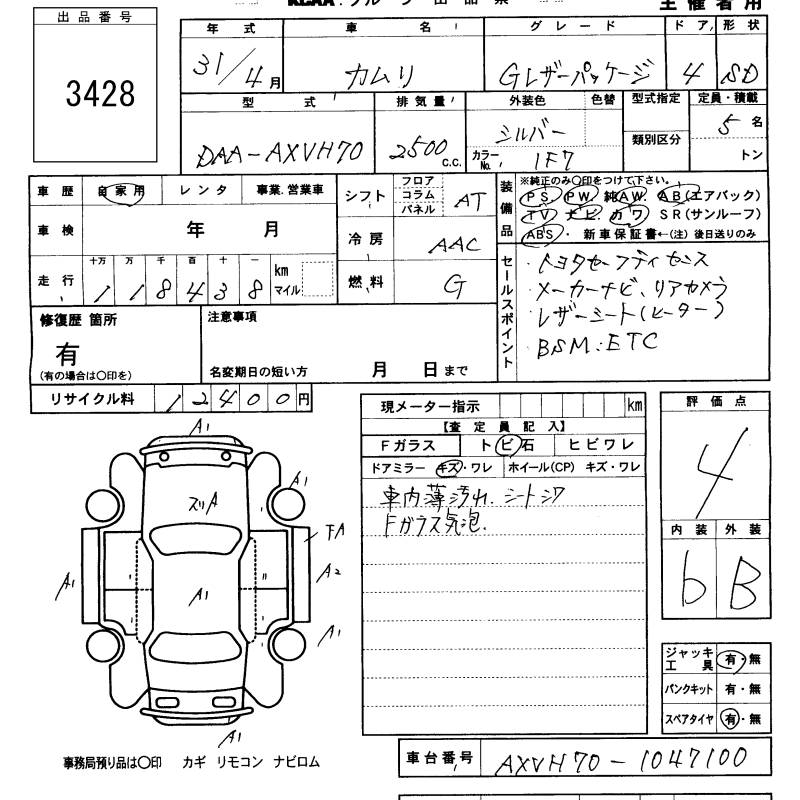 出品番号
3428
主催者用
年式 車名 グレード ドア 形状
31/4月 カムリ Gレザーパッケージ 4 SD
型式 排気量 外装色 色替 型式指定 定員・積載
DAA-AXVH70 2500c.c. シルバー 類別区分 5名
カラーNo. 1F7 トン
車歴 自家用 レンタ 事業.営業車
車検 年 月
走行 十万 万 千 百 十 一
1 1 8 4 3 8 km マイル
シフト フロア コラム パネル AT
冷房 AAC
燃料 G
装備品
※純正のみ〇印をつけて下さい。
PS. PW. 純AW. AB(エアバック)
TV ナビ. カワ SR(サンルーフ)
ABS・ 新車保証書←(注) 後日送りのみ
セールスポイント
・トヨタセーフティセンス
・メーカーナビ、リアカメラ
・レザーシート(ヒーター)
・BSM:ETC
修復歴 箇所
有
(有の場合は〇印を)
注意事項
名変期日の短い方 月 日まで
リサイクル料 12400円
現メーター指示 km
【査定員記入】
Fガラス トビ石 ヒビワレ
ドアミラー キズ・ワレ ホイール(CP) キズ・ワレ
車内薄汚れ、シートシワ
Fガラス気泡、
評価点
4
内装 外装
b B
ジャッキ工具 有・無
パンクキット 有・無
スペアタイヤ 有・無
A1
スリA
A1
FA
A1
A1
A2
A1
A1
事務局預り品は〇印 カギ リモコン ナビロム
車台番号 AXVH70-1047100